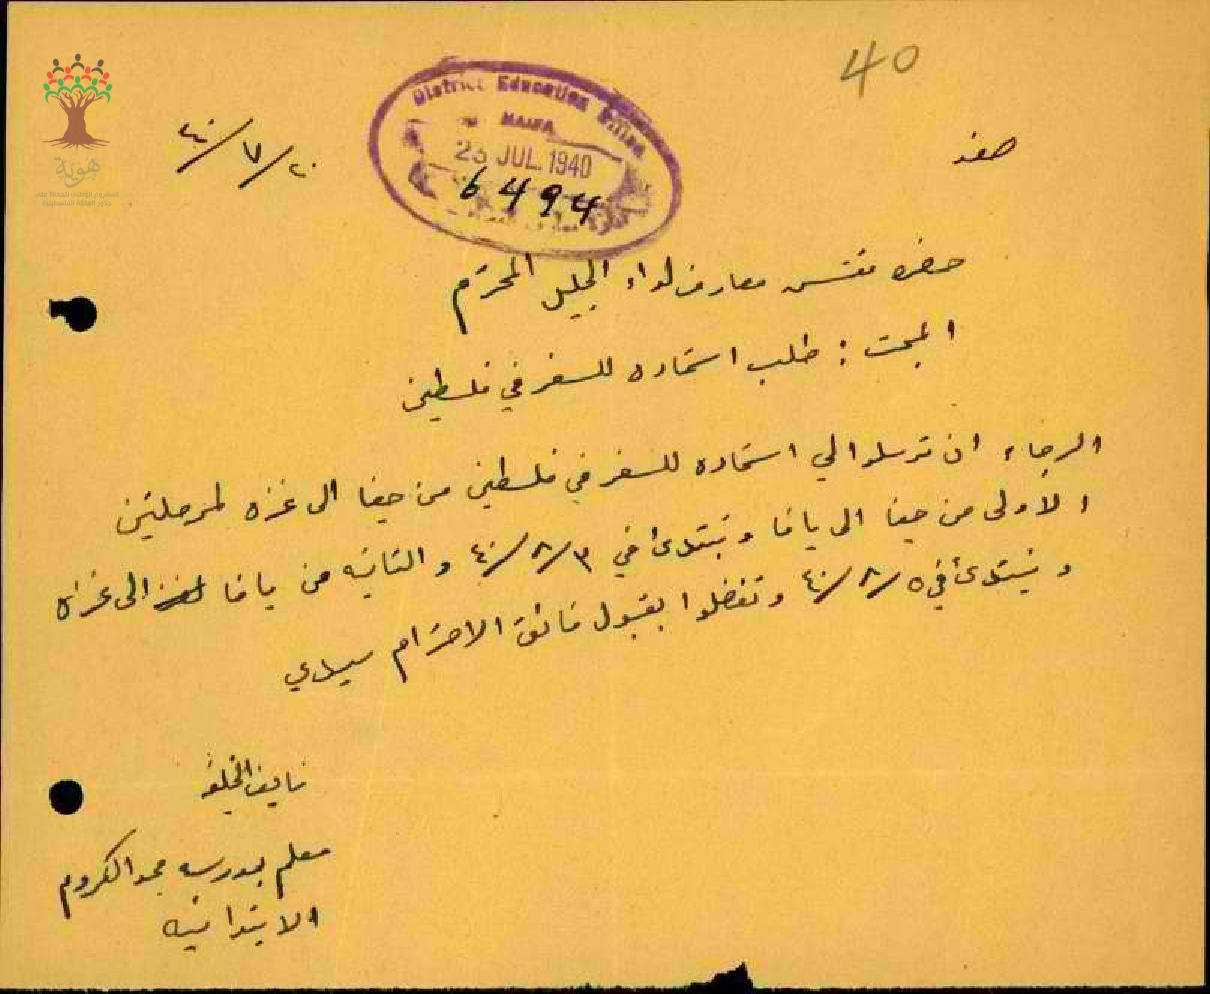 40
هوية
District Education Office
HAIFA
23 JUL. 1940
6494
صفد
٢٠/٧/٤٠
حضره مفتش معارف لواء الجليل المحترم
المبحث : طلب استماره للسفر في فلسطين
الرجاء ان ترسلوا لي استماره للسفر في فلسطين من حيفا الى غزه لمرحلتين
الاولى من حيفا الى يافا وتبتدئ في ٣/٨/٤٠ والثانيه من يافا الى غزه
وتبتدئ في ٥/٨/٤٠ وتفضلوا بقبول فائق الاحترام سيدي
نايف
معلم بمدرسه مجد الكروم
الابتدائيه